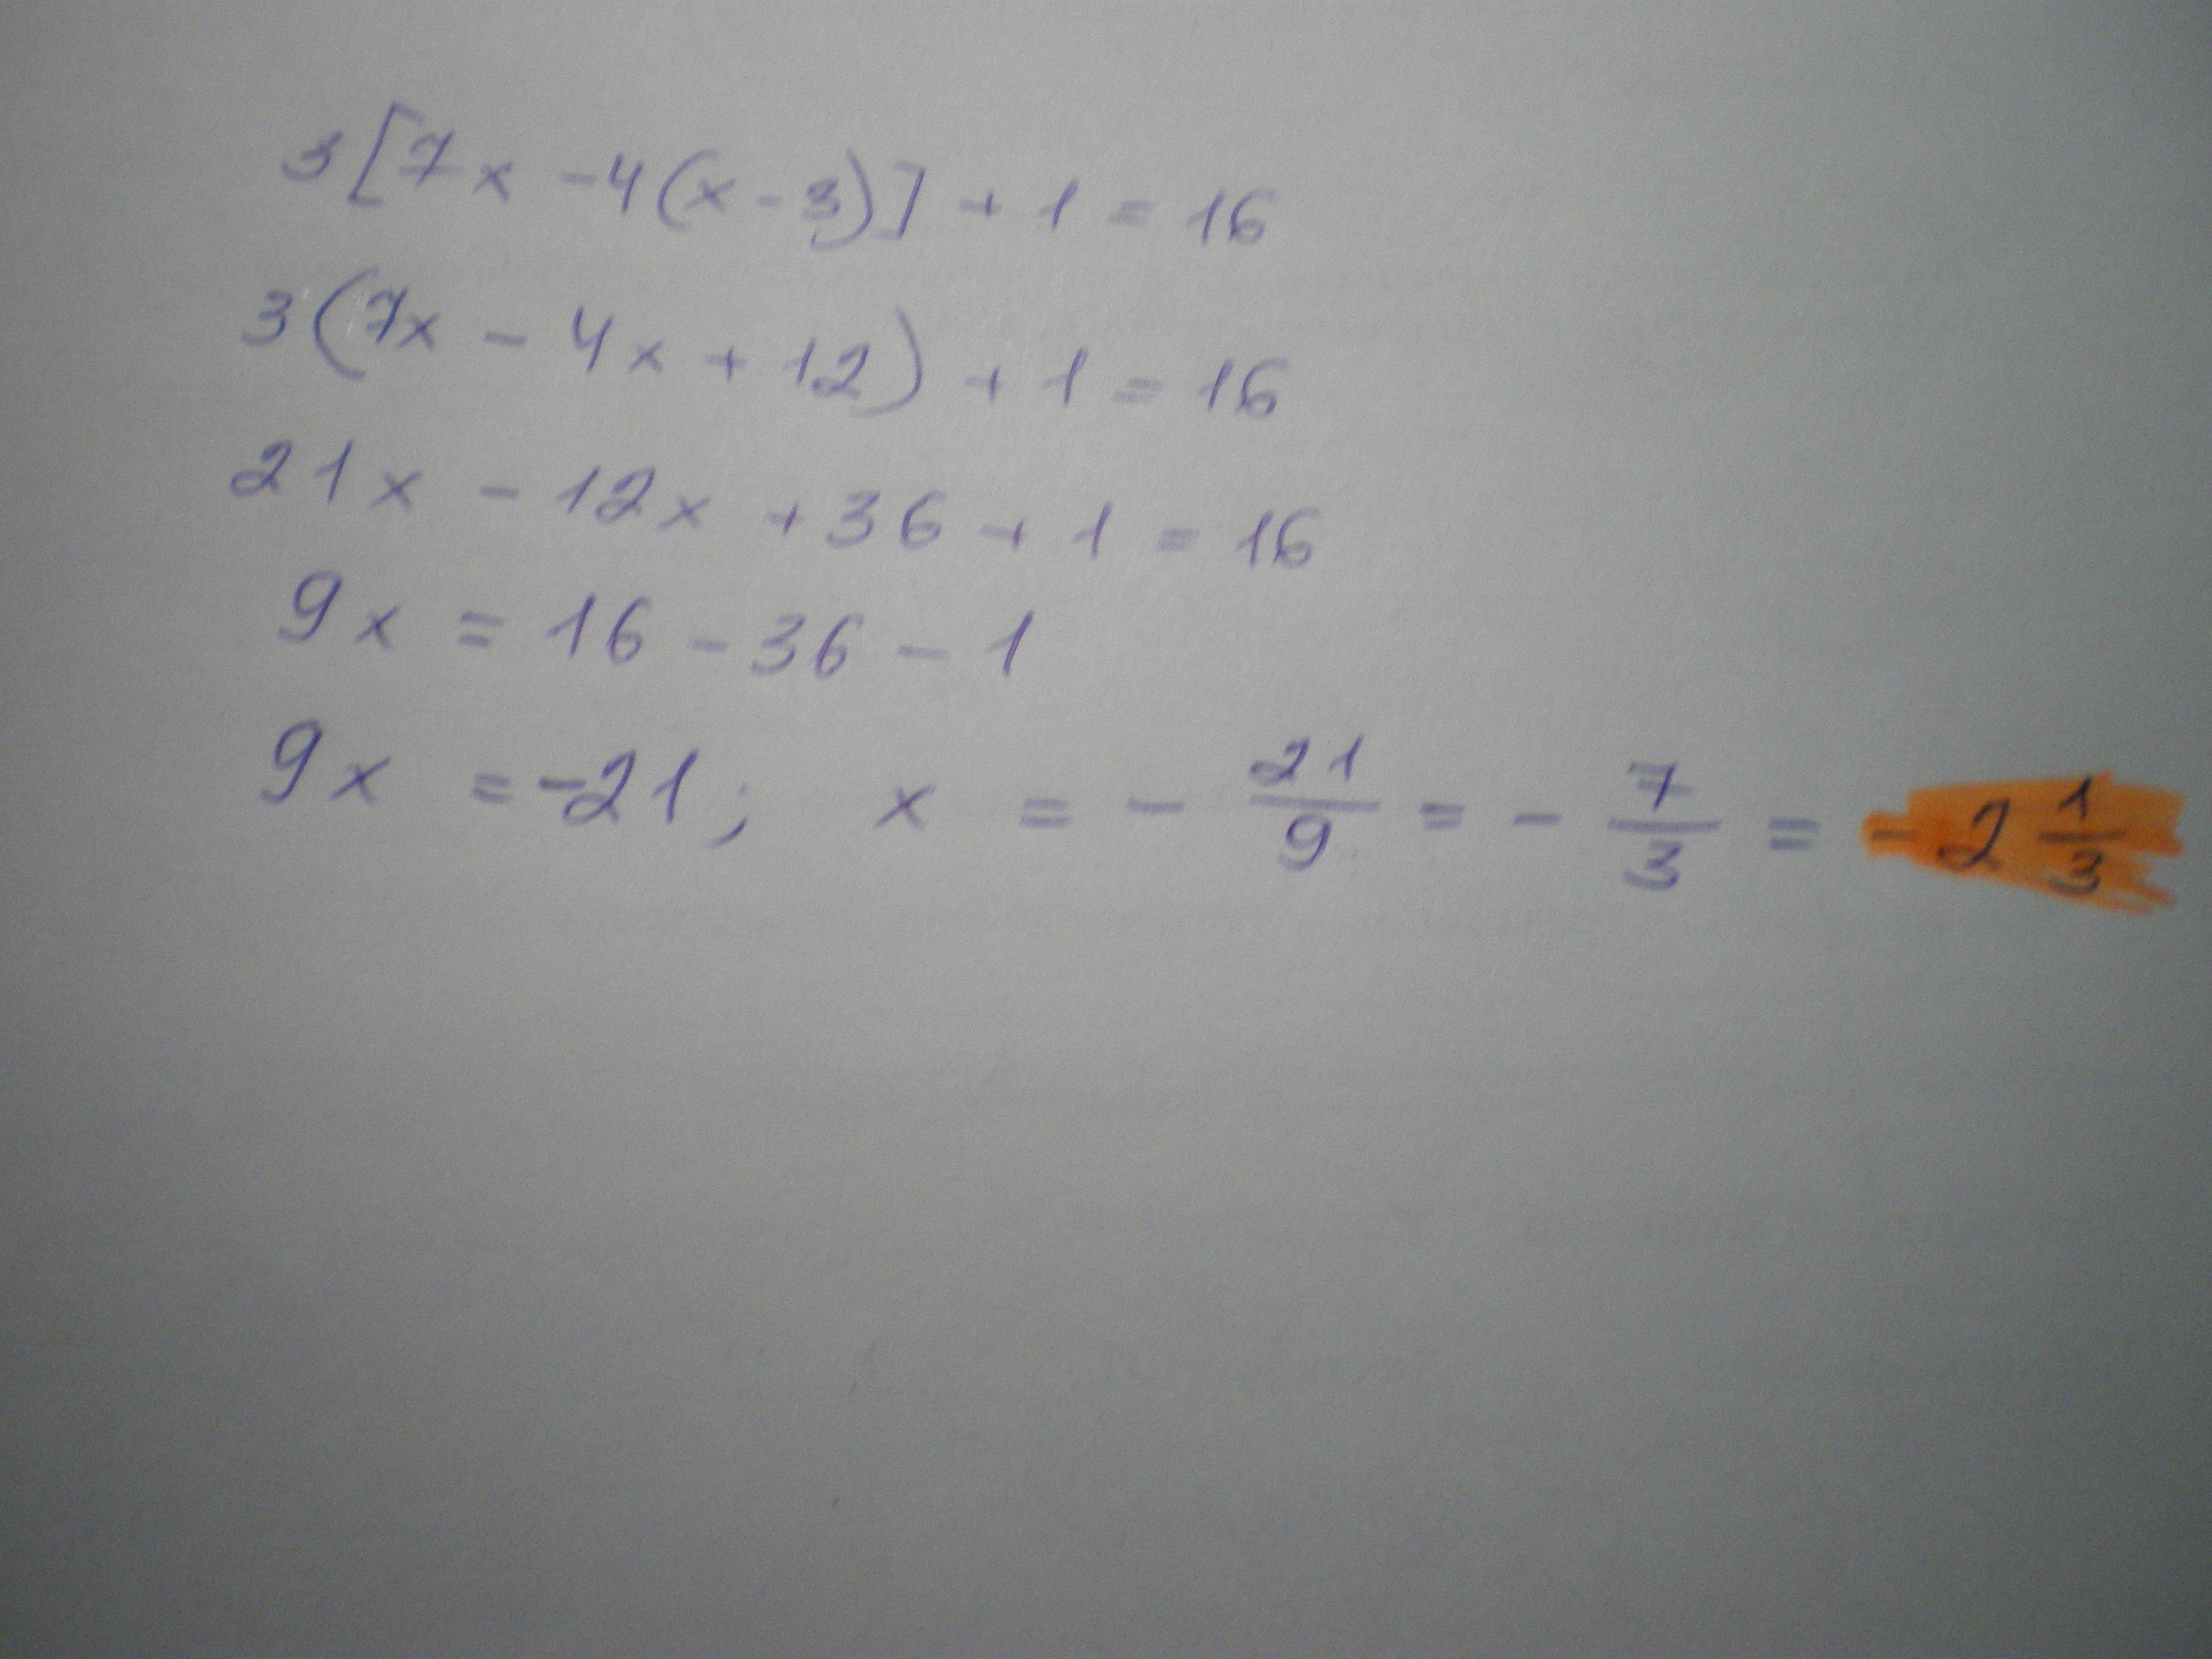 3[7x - 4(x - 3)] + 1 = 16
3(7x - 4x + 12) + 1 = 16
21x - 12x + 36 + 1 = 16
9x = 16 - 36 - 1
9x = -21; x = - 21/9 = - 7/3 = - 2 1/3